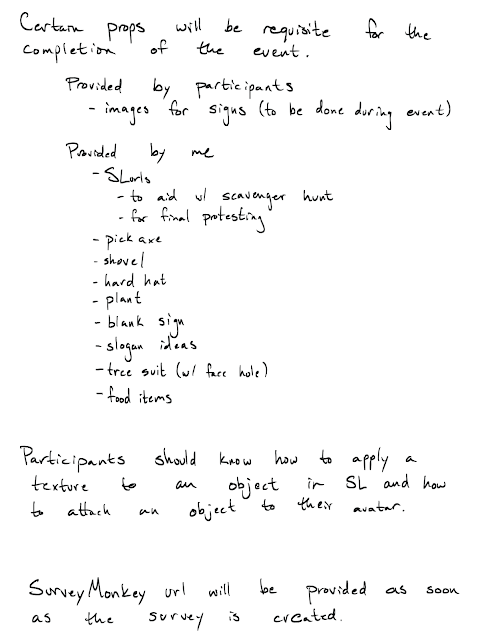 Certain props will be requisite for the
completion of the event.
Provided by participants
- images for signs (to be done during event)
Provided by me
- SLurls
- to aid w/ scavenger hunt
- for final protesting
- pick axe
- shovel
- hard hat
- plant
- blank sign
- slogan ideas
- tree suit (w/ face hole)
- food items
Participants should know how to apply a
texture to an object in SL and how
to attach an object to their avatar.
SurveyMonkey url will be provided as soon
as the survey is created.